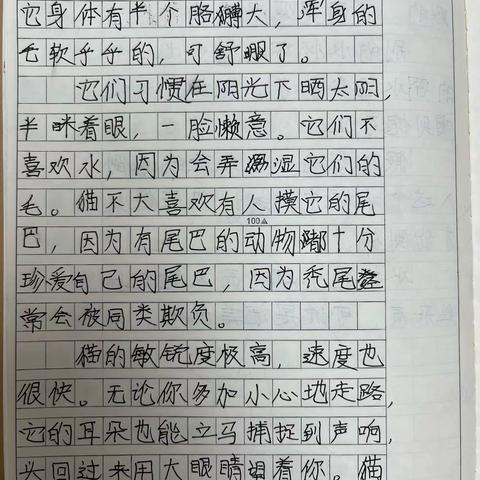 它身体有半个胳膊大，浑身的
毛软乎乎的，可舒眼了。
它们习惯在阳光下晒太阳，
半眯着眼，一脸懒意。它们不
喜欢水，因为会弄湿它们的
毛。猫不大喜欢有人摸它的尾
100△
巴，因为有尾巴的动物都十分
珍爱自己的尾巴，因为秃尾
常会被同类欺负。
猫的敏锐度极高，速度也
很快。无论你多加小心地走路，
它的耳朵也能立马捕捉到声响，
头回过来用大眼睛着你。猫